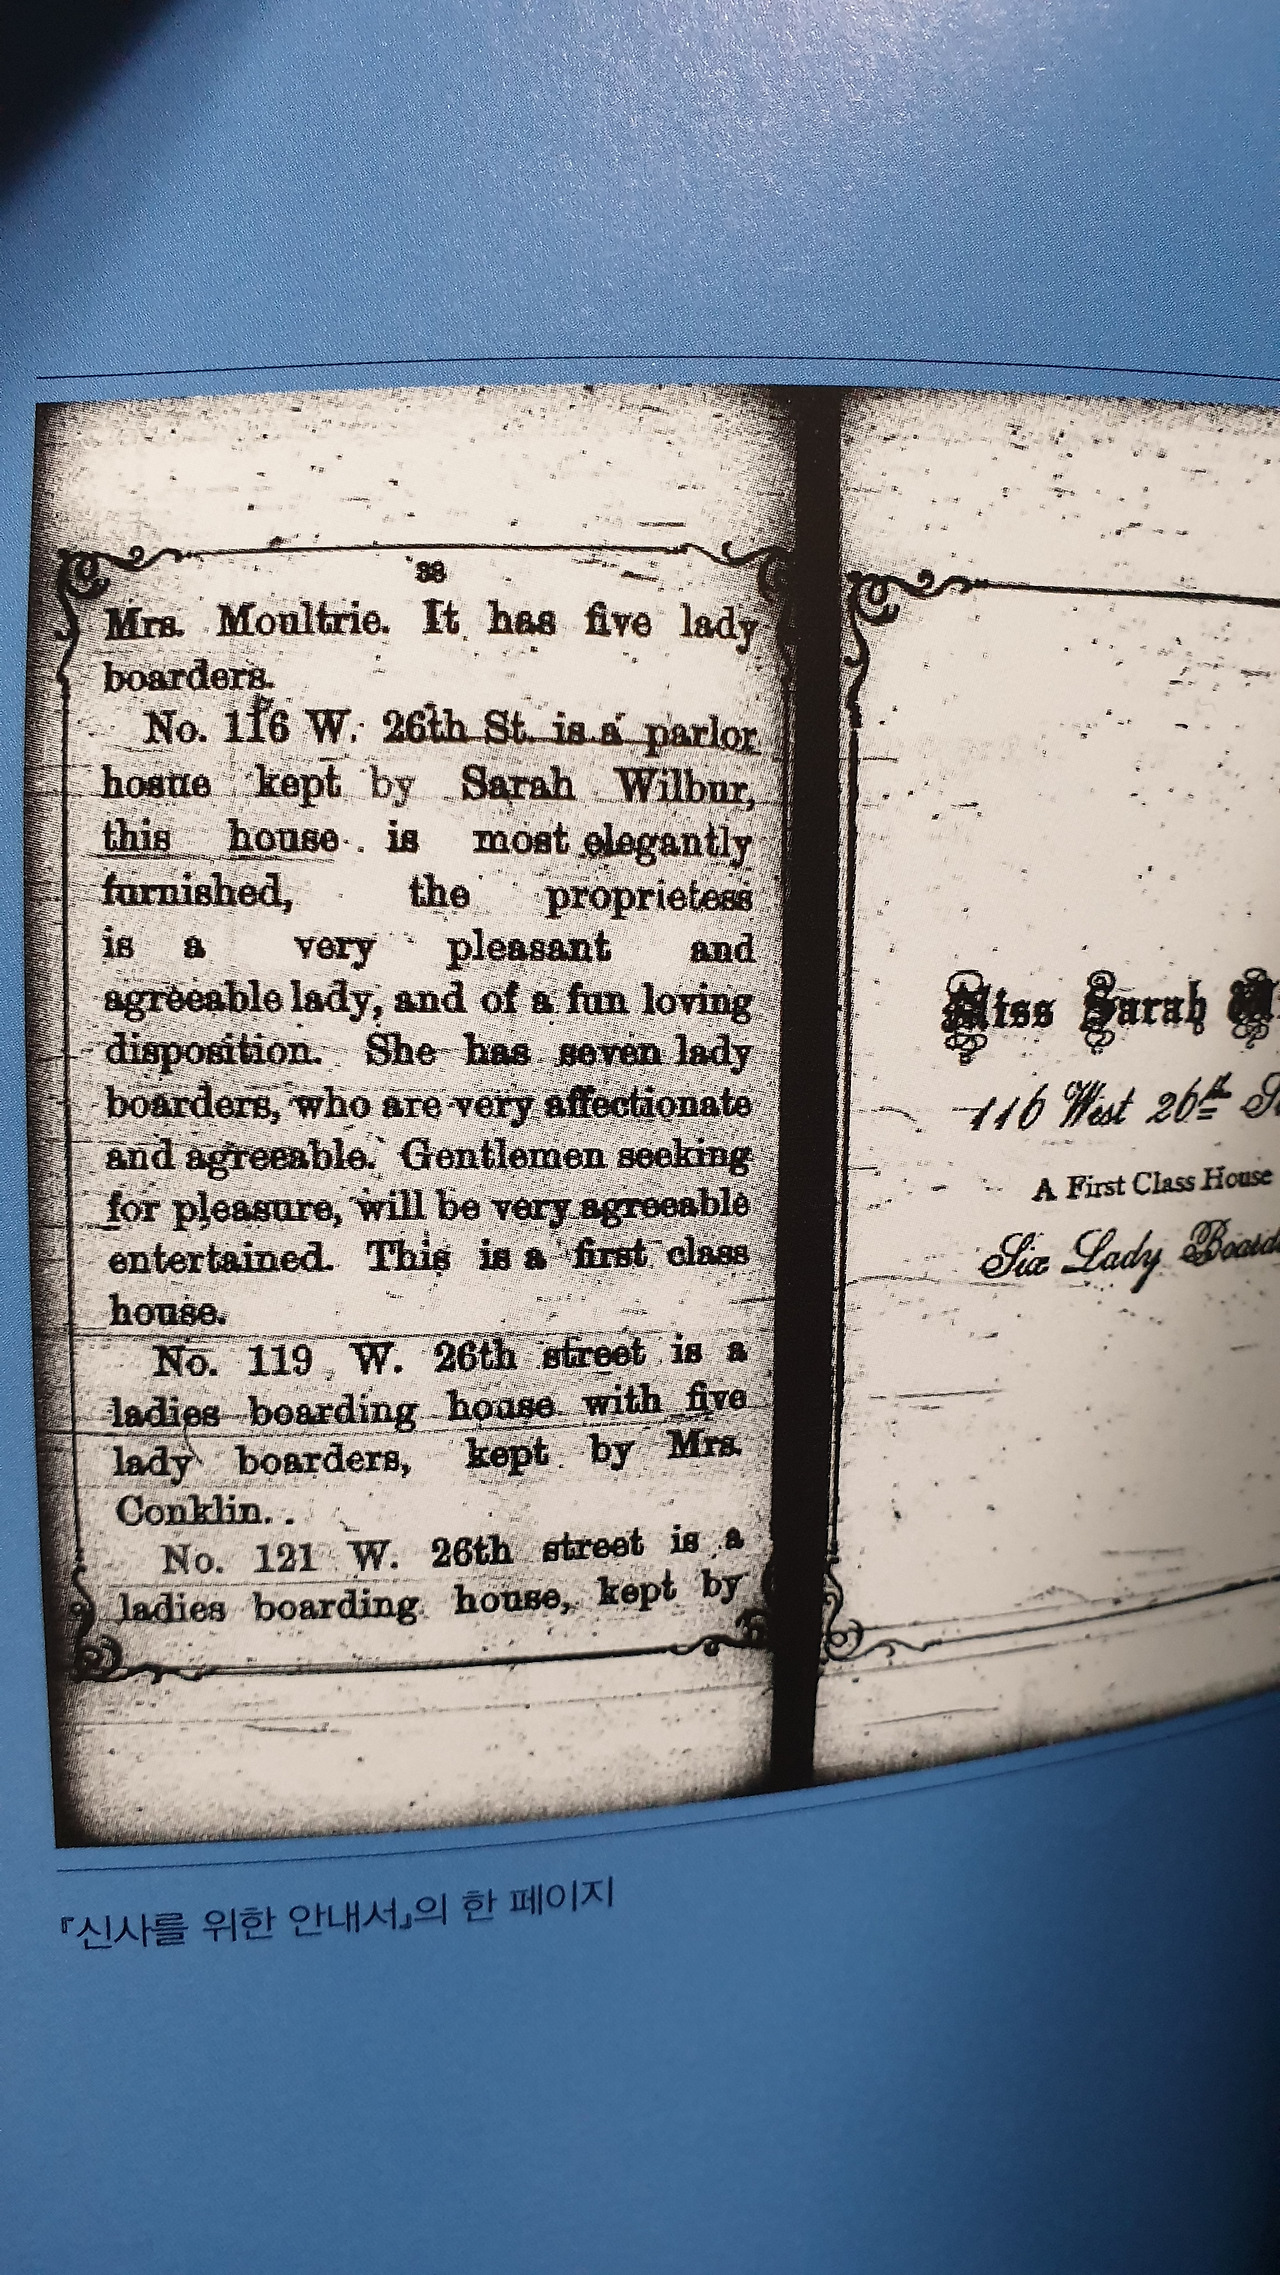 38
Mrs. Moultrie. It has five lady
boarders.
No. 116 W. 26th St. is a parlor
hosue kept by Sarah Wilbur,
this house is most elegantly
furnished, the proprietess
is a very pleasant and
agreeable lady, and of a fun loving
disposition. She has seven lady
boarders, who are very affectionate
and agreeable. Gentlemen seeking
for pleasure, will be very agreeable
entertained. This is a first class
house.
No. 119 W. 26th street is a
ladies boarding house with five
lady boarders, kept by Mrs.
Conklin.
No. 121 W. 26th street is a
ladies boarding house, kept by
Miss Sarah
116 West 26th
A First Class House
Six Lady
『신사를 위한 안내서』의 한 페이지